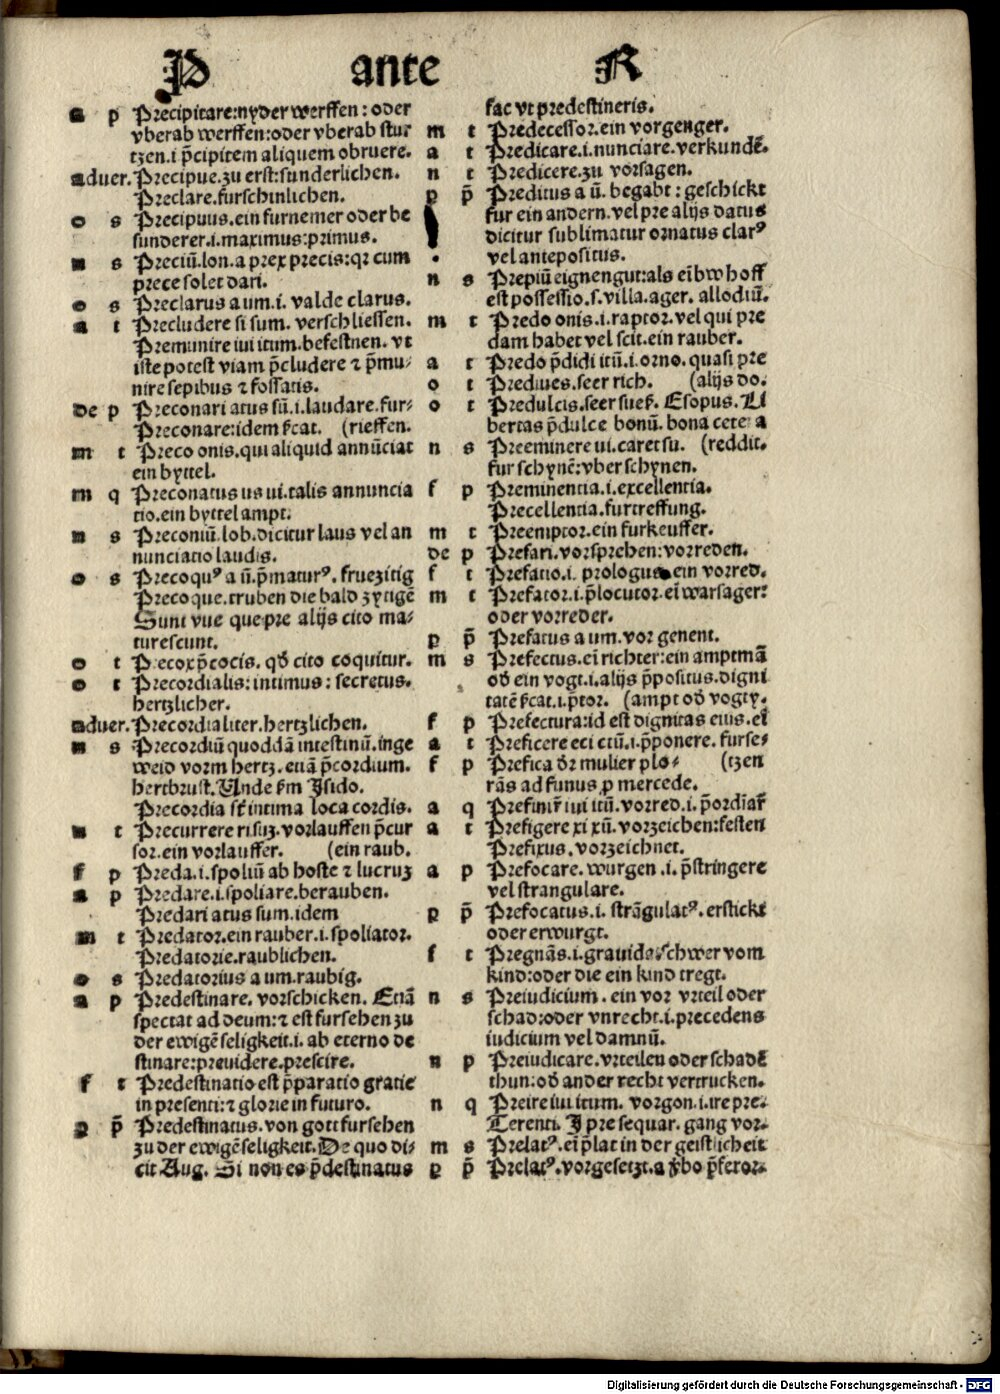 P ante R
a p Precipitare:nyder werffen: oder
vberab werffen:oder vberab stur
tzen.i p̄cipitem aliquem obruere.
aduer. Precipue.zu erst:sunderlichen.
Preclare.furschinlichen.
o s Precipuus.ein furnemer oder be
sunderer.i.maximus:primus.
n s Preciū.lon.a prex precis:qr cum
prece solet dari.
o s Preclarus a um.i. valde clarus.
a t Precludere si sum. verschliessen.
Premunire iui itum.befestnen. vt
iste potest viam p̄cludere ⁊ p̄mu⸗
nire sepibus ⁊ fossatis.
de p Preconari atus sū.i.laudare.fur⸗
Preconare:idem s̄cat. (rieffen.
m t Preco onis.qui aliquid annūciat
ein byttel.
m q Preconatus us ui.talis annuncia
tio.ein byttel ampt.
n s Preconiū.lob.dicitur laus vel an
nunciatio laudis.
o s Precoquꝰ a ū.p̄maturꝰ. fruezitig
Precoque.truben die bald zytigē
Sunt vue que pre alijs cito ma⸗
turescunt.
o t Precox p̄cocis. qđ cito coquitur.
o t Precordialis: intimus: secretus.
hertzlicher.
aduer. Precordialiter.hertzlichen.
n s Precordiū quoddā intestinū.inge
weid vorm hertz. etiā p̄cordium.
hertbrust.Unde s̄m Isido.
Precordia sūt intima loca cordis.
n t Precurrere ri suz.vorlauffen p̄cur
sor.ein vorlauffer. (ein raub.
f p Preda.i.spoliū ab hoste ⁊ lucruz
a p Predare.i.spoliare.berauben.
Predari atus sum.idem
m t Predator.ein rauber.i.spoliator.
Predatorie.raublichen.
o s Predatorius a um.raubig.
a p Predestinare. vorschicken. Etiā
spectat ad deum:⁊ est fursehen zu
der ewigē seligkeit.i. ab eterno de
stinare:preuidere.prescire.
f t Predestinatio est p̄paratio gratie
in presenti:⁊ glorie in futuro.
p p̄ Predestinatus. von gott fursehen
zu der ewigē seligkeit.De quo di⸗
cit Aug. Si non es p̄destinatus
fac vt predestineris.
m t Predecessor.ein vorgenger.
a t Predicare.i.nunciare.verkundē.
n t Predicere.zu vorsagen.
p p̄ Preditus a ū. begabt : geschickt
fur ein andern.vel pre alijs datus
dicitur sublimatur ornatus clarꝰ
vel antepositus.
n s Prepiū eignengut:als eī bwhoff
est possessio.s.villa.ager. allodiū.
m t Predo onis.i.raptor.vel qui pre
dam habet vel scit.ein rauber.
a t Predo p̄didi itū.i.orno. quasi pre
o t Prediues.seer rich. (alijs do.
o t Predulcis.seer suess. Esopus.Li
bertas p̄dulce bonū. bona cetera
n s Preeminere ui.caret su. (reddit.
fur schynē:vber schynen.
f p Preminentia.i.excellentia.
Precellentia.furtreffung.
m t Preemptor.ein furkeuffer.
de p Prefari.vorsprehen:vorreden.
f t Prefatio.i. prologus.ein vorred.
m t Prefator.i.p̄locutor.eī warsager:
oder vorreder.
p p̄ Prefatus a um.vor genent.
m s Prefectus.eī richter:ein amptmā
od̄ ein vogt.i.alijs p̄positus.digni
tatē s̄cat.i.ptor. (ampt od̄ vogty.
f p Prefectura:id est dignitas eius.eī
a t Preficere eci ctū.i.p̄ponere. furse⸗
f p Prefica dr̄ mulier plo⸗ (tzen
rās ad funus ꝓ mercede.
a q Prefinir̄ iui itū.vorred.i.p̄ordīar̄
a t Prefigere xi xū.vorzeichen:festen
Prefixus.vorzeichnet.
a p Prefocare. wurgen .i.p̄stringere
vel strangulare.
p p̄ Prefocatus.i. strāgulatꝰ. erstickt
oder erwurgt.
f t Pregnās.i.grauida.schwer vom
kind:oder die ein kind tregt.
n s Preiudicium. ein vor vrteil oder
schad:oder vnrecht.i.precedens
iudicium vel damnū.
n p Preiudicare.vrteilen oder schadē
thun:od̄ ander recht vertrucken.
n q Preire iui itum. vorgon.i.ire pre⸗
Terenti. I pre sequar. gang vor⸗
m s Prelatꝰ.eī p̄lat in der geistlicheit
p p̄ Prelatꝰ.vorgesetzt.a v̄bo p̄feror⸗
Digitalisierung gefördert durch die Deutsche Forschungsgemeinschaft - DFG